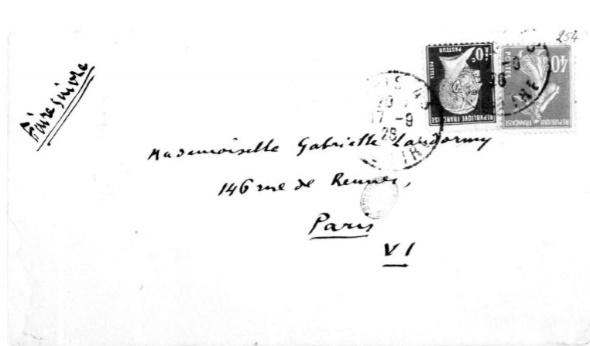 254
Faire suivre
10c
POSTES
PASTEUR
REPUBLIQUE FRANÇAISE
40c
POSTES
REPUBLIQUE FRANÇAISE
17 - 9
26
Mademoiselle Gabrielle Landormy
146 rue de Rennes,
Paris
VI